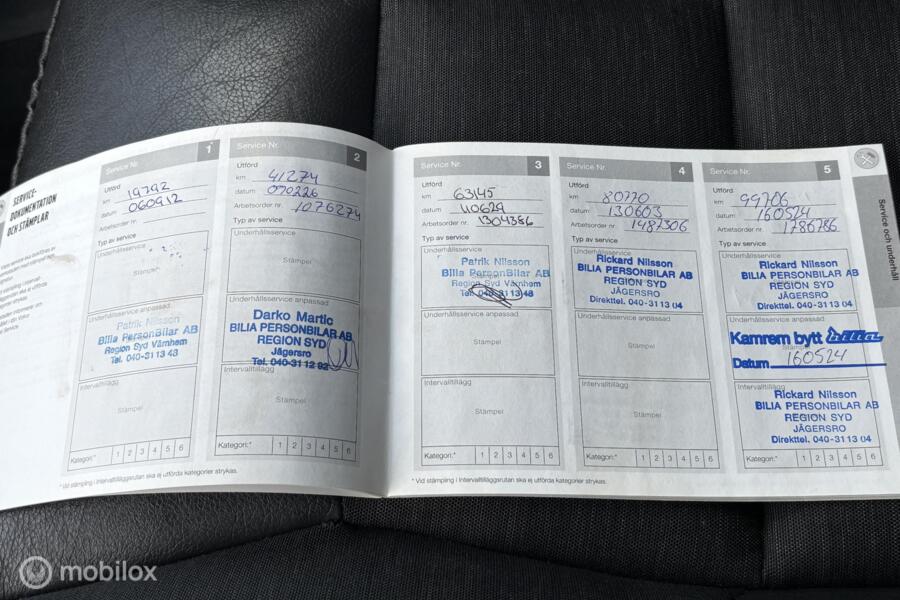 SERVICE-
DOKUMENTATION
OCH STÄMPLAR
Service Nr. 1
Utförd
km 19792
datum 060912
Arbetsorder nr.
Typ av service
Underhållsservice
Stämpel
Underhållsservice anpassad
Patrik Nilsson
Bilia PersonBilar AB
Region Syd Värnhem
Tel. 040-31 13 48
Intervalltillägg
Stämpel
Kategori:* 1 2 3 4 5 6
Service Nr. 2
Utförd
km 41274
datum 070226
Arbetsorder nr. 1076274
Typ av service
Underhållsservice
Stämpel
Underhållsservice anpassad
Darko Martic
BILIA PERSONBILAR AB
REGION SYD
Jägersro
Tel. 040-31 12 92
Intervalltillägg
Stämpel
Kategori:* 1 2 3 4 5 6
* Vid stämpling i Intervalltilläggsrutan ska ej utförda kategorier strykas.
Service Nr. 3
Utförd
km 63145
datum 110629
Arbetsorder nr. 1304386
Typ av service
Underhållsservice
Patrik Nilsson
Bilia PersonBilar AB
Region Syd Värnhem
Tel. 040-31 13 48
Underhållsservice anpassad
Stämpel
Intervalltillägg
Stämpel
Kategori:* 1 2 3 4 5 6
Service Nr. 4
Utförd
km 80770
datum 130603
Arbetsorder nr. 1487306
Typ av service
Underhållsservice
Rickard Nilsson
BILIA PERSONBILAR AB
REGION SYD
JÄGERSRO
Direkttel. 040-31 13 04
Underhållsservice anpassad
Stämpel
Intervalltillägg
Stämpel
Kategori:* 1 2 3 4 5 6
Service Nr. 5
Utförd
km 99706
datum 160524
Arbetsorder nr. 1786786
Typ av service
Underhållsservice
Rickard Nilsson
BILIA PERSONBILAR AB
REGION SYD
JÄGERSRO
Direkttel. 040-31 13 04
Underhållsservice anpassad
Kamrem bytt bilia
Stämpel
Datum 160524
Intervalltillägg
Rickard Nilsson
BILIA PERSONBILAR AB
REGION SYD
JÄGERSRO
Direkttel. 040-31 13 04
Kategori:* 1 2 3 4 5 6
* Vid stämpling i Intervalltilläggsrutan ska ej utförda kategorier strykas.
Service och underhåll
mobilox